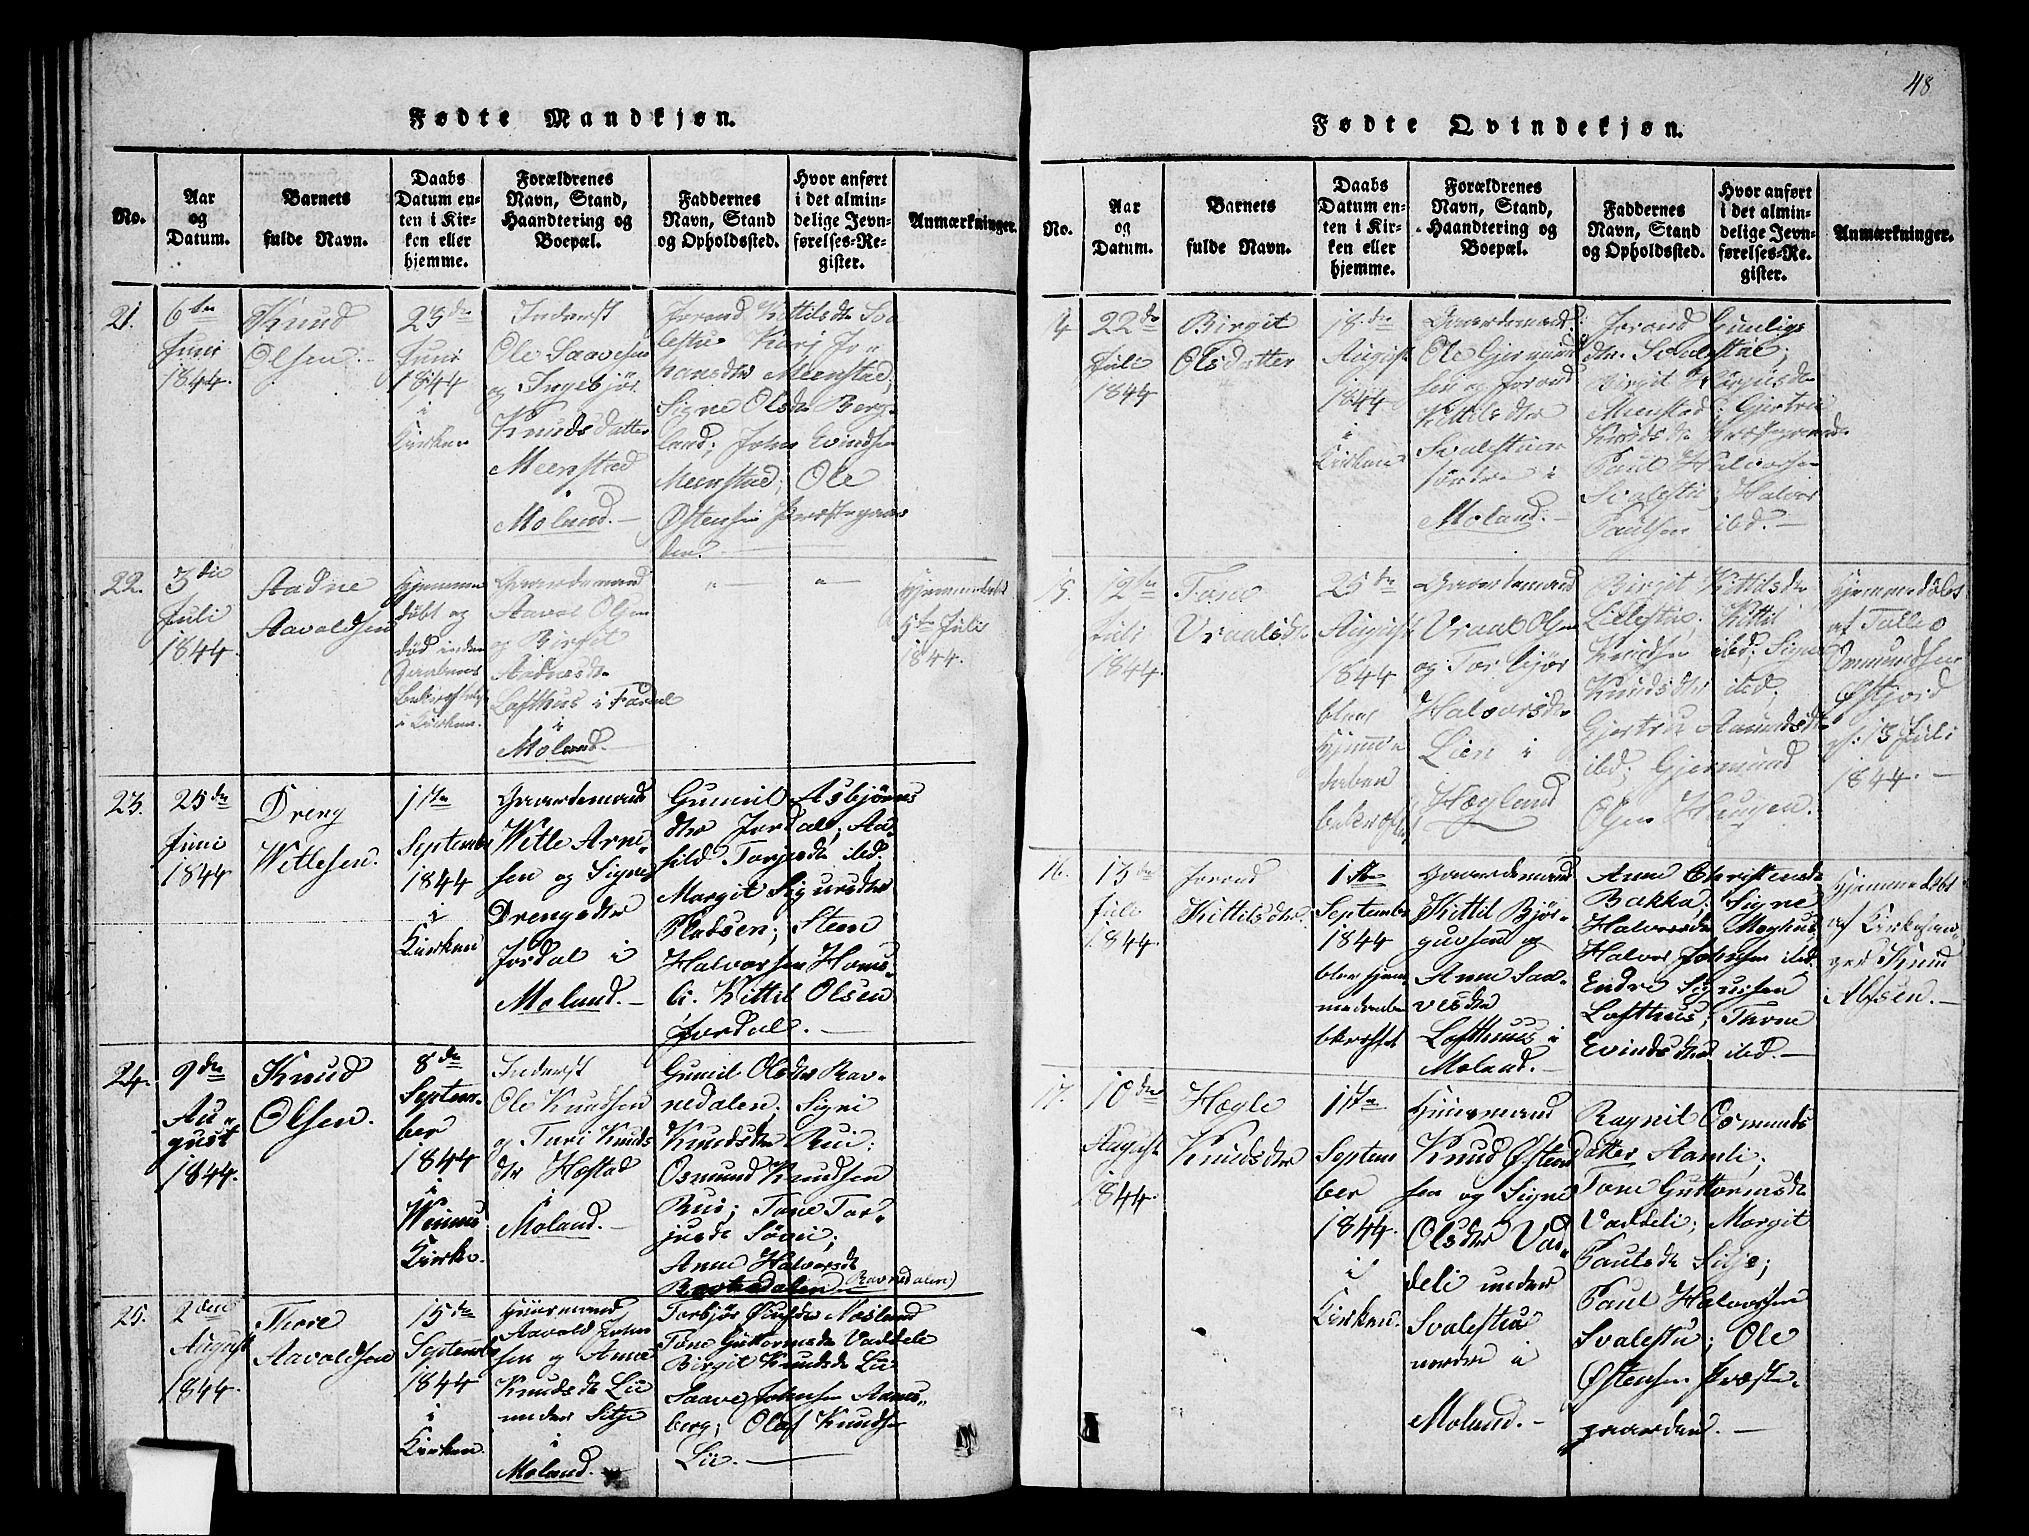 Fødte Mandkjøn.
No.
Aar
og
Datum.
Barnets
fulde Navn.
Daabs
Datum en-
ten i Kir-
ken eller
hjemme.
Forældrenes
Navn, Stand,
Haandtering og
Boepæl.
Faddernes
Navn, Stand
og Opholdssted.
Hvor anført
i det almin-
delige Jevn-
førelses-Re-
gister.
Anmærkninger.
21.
6te
Juni
1844.
Knud
Olsen.
23de
Juni
1844
i
Kirken
Inderst
Ole Saavesen
og Ingebjør
Knudsdatter
Meenstad
i
Moland.
Jorand Kittilsdr Sva
lestu Kari Jo-
hansdr Meenstad;
Signe Olsdr Berg-
land; John Evindsen
Meenstad; Ole
Østensen Præstegaar
den.
22.
3die
Juli
1844.
Aadne
Aavoldsen
Hjemme
døbt og
død inden
Daabens
Bekræftelse
i Kirken.
Gaardemand
Aavol Olsen
og Birgit
Aadnesdr
Lofthus i
i
Moland.
Hjemmedøbt
5te Juli
1844.
23.
25de
Juni
1844
Dreng
Wetlesen.
1ste
September
1844
i
Kirken
Gaardemand
Wetle Arne-
sen og Signe
Drengsdtr
Jordal i
Moland.
Gunnil Asbjørns
dtr Jordal; Aa-
sild Torjusdr ibd.
Margit Sigursdtr
Pladsen; Steen
Halvorsen Homs-
li. Kittil Olsen
Jordal.
24.
9de
Au-
gust
1844.
Knud
Olsen.
8de
Septem-
ber
1844
i
Weinius
Kirke.
Inderst
Ole Knudsen
og Turi Knuds
dtr Hostad
i
Moland.
Gunnil Olsdtr Rav-
nedalen; Signi
Knudsdtr Rui;
Osmund Knudsen
Rui; Tone Tor-
jusdr
Anne Halvorsdr
Ravnedalen)
25.
2den
August
1844.
Thore
Aavoldsen
15de
September
1844
i
Kirken.
Huusmand
Aavold John
sen og Anne
Knudsdr Lie
under Sitje
i
Moland.
Torbjør Næsland
Tone Guttormsdr Vaddele
Birgit Knudsdr Lie
Saave Johnsen Aanes-
berg; Olaf Knudsen
Lie.
48
Fødte Qvindekjøn.
No.
Aar
og
Datum.
Barnets
fulde Navn.
Daabs
Datum en-
ten i Kir-
ken eller
hjemme.
Forældrenes
Navn, Stand,
Haandtering og
Boepæl.
Faddernes
Navn, Stand
og Opholdssted.
Hvor anført
i det almin-
delige Jevn-
førelses-Re-
gister.
Anmærkninger.
14
22de
Juli
1844
Birgit
Olsdatter
18de
August
1844
i
Kirken
Gaardemand
Ole Gjermund
sen og Jorand
Kittilsdtr
Svalestuen
søndre i
Moland.
Jorand Kunligs
dtr. Svalestue;
Birgit
Meenstad; Gjertru
Knudsdr Præstegaard
Paul Halvorsen
Svalestu; Halvor
Paulsen ibd.
15.
12te
Juli
1844.
Tone
Vraalsdtr
25de
August
1844
blev
Hjemme
daaben
bekræftet
Gaardemand
Vraal Olsen
og Torbjør
Halvorsdr
Lien i
Høgland
Birgit Kittilsdr
Lillestue; Kittil
Knudsen ibd; Signe
Knudsdtr ibd;
Gjertru Aamundsdr
ibd; Gjermund
Olsen Haugen.
Hjemmedøbt
af Tallev
Omundsen
Østjord
d: 13 Juli
1844.
16.
13de
Juli
1844.
Jorand
Kittilsdtr
1ste
September
1844
blev hjem-
medaaben
bekræftet
Gaardemand
Kittil Bjør-
gufsen og
Anne Saa-
vesdtr
Lofthuus i
Moland.
Anne Christensdr
Bakka; Signe
Halvorsdr Moghus
Halvor Johnsen ibd.
Endre Sigursen
Lofthus; Torne
Evindsdtr ibd.
Hjemmedøbt
af Kirkesan-
ger Knud
Alfsen.
17.
10de
August
1844.
Høgle
Knudsdtr
1ste
Septem
ber
1844.
i
Kirken.
Huusmand
Knud Østen
sen og Signe
Olsdtr Vad-
deli under
Svalestue
nordre i
Moland.
Ragnil Osmunds
datter Aamli;
Tone Guttormsdr
Vaddeli; Margit
Paulsdr Sitje;
Paul Halvorsen
Svalestu; Ole
Østensen Præste-
gaarden.